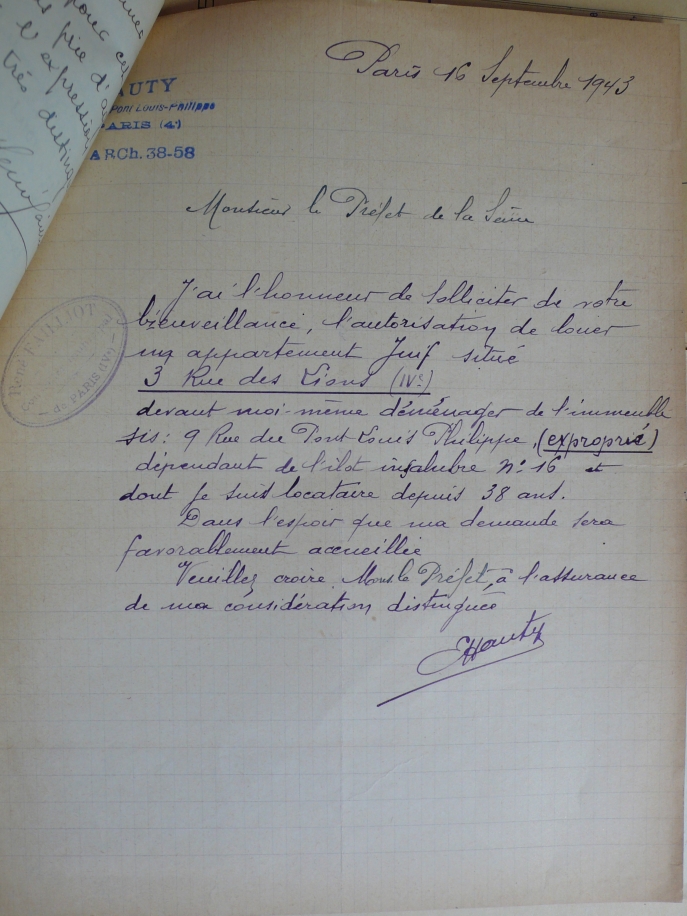 pour ce
pire d'a
l'expression
très disting
AUTY
Pont Louis-Philippe
PARIS (4e)
ARCh. 38-58
Paris 16 Septembre 1943
Monsieur le Préfet de la Seine
René FAILLIOT
de PARIS (IVe)
J'ai l'honneur de solliciter de votre
bienveillance, l'autorisation de louer
un appartement Juif situé
3 Rue des Lions (IVe)
devant moi-même déménager de l'immeuble
sis: 9 Rue du Pont Louis Philippe, (exproprié)
dépendant de l'ilot insalubre No 16 et
dont je suis locataire depuis 38 ans.
Dans l'espoir que ma demande sera
favorablement accueillie
Veuillez croire, Mons le Préfet, à l'assurance
de ma considération distinguée
Hauty